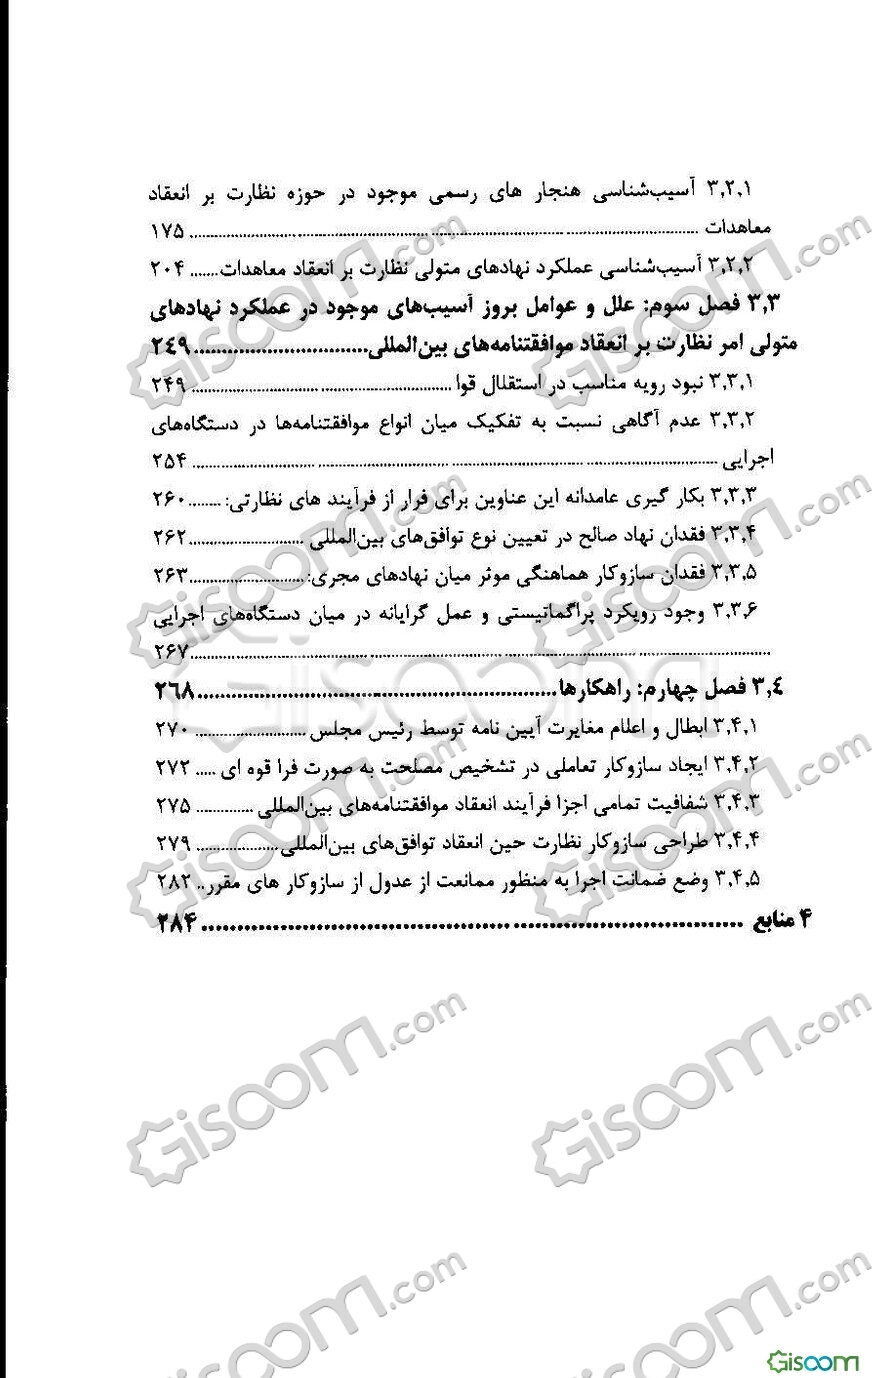 ۳,۲,۱ آسیب‌شناسی هنجار های رسمی موجود در حوزه نظارت بر انعقاد
معاهدات ........ ۱۷۵
۳,۲,۲ آسیب‌شناسی عملکرد نهادهای متولی نظارت بر انعقاد معاهدات....... ۲۰۴
۳,۳ فصل سوم: علل و عوامل بروز آسیب‌های موجود در عملکرد نهادهای
متولی امر نظارت بر انعقاد موافقتنامه‌های بین‌المللی........ ۲۴۹
۳,۳,۱ نبود رویه مناسب در استقلال قوا ........ ۲۴۹
۳,۳,۲ عدم آگاهی نسبت به تفکیک میان انواع موافقتنامه‌ها در دستگاه‌های
اجرایی ........ ۲۵۴
۳,۳,۳ بکار گیری عامدانه این عناوین برای فرار از فرآیند های نظارتی: ........ ۲۶۰
۳,۳,۴ فقدان نهاد صالح در تعیین نوع توافق‌های بین‌المللی ........ ۲۶۲
۳,۳,۵ فقدان سازوکار هماهنگی موثر میان نهادهای مجری: ........ ۲۶۳
۳,۳,۶ وجود رویکرد پراگماتیستی و عمل گرایانه در میان دستگاه‌های اجرایی
........ ۲۶۷
۳,۴ فصل چهارم: راهکارها........ ۲۶۸
۳,۴,۱ ابطال و اعلام مغایرت آیین نامه توسط رئیس مجلس ........ ۲۷۰
۳,۴,۲ ایجاد سازوکار تعاملی در تشخیص مصلحت به صورت فرا قوه ای ..... ۲۷۲
۳,۴,۳ شفافیت تمامی اجزا فرآیند انعقاد موافقتنامه‌های بین‌المللی ........ ۲۷۵
۳,۴,۴ طراحی سازوکار نظارت حین انعقاد توافق‌های بین‌المللی........ ۲۷۹
۳,۴,۵ وضع ضمانت اجرا به منظور ممانعت از عدول از سازوکار های مقرر.. ۲۸۲
۴ منابع ........ ۲۸۴
Gisoom.com
Gisoom.com
Gisoom.com
Gisoom.com
Gisoom.com
Gisoom.com
Gisoom
Gisoom.com
Gisoom.com
Gisoom.com
Gisoom.com
Gisoom